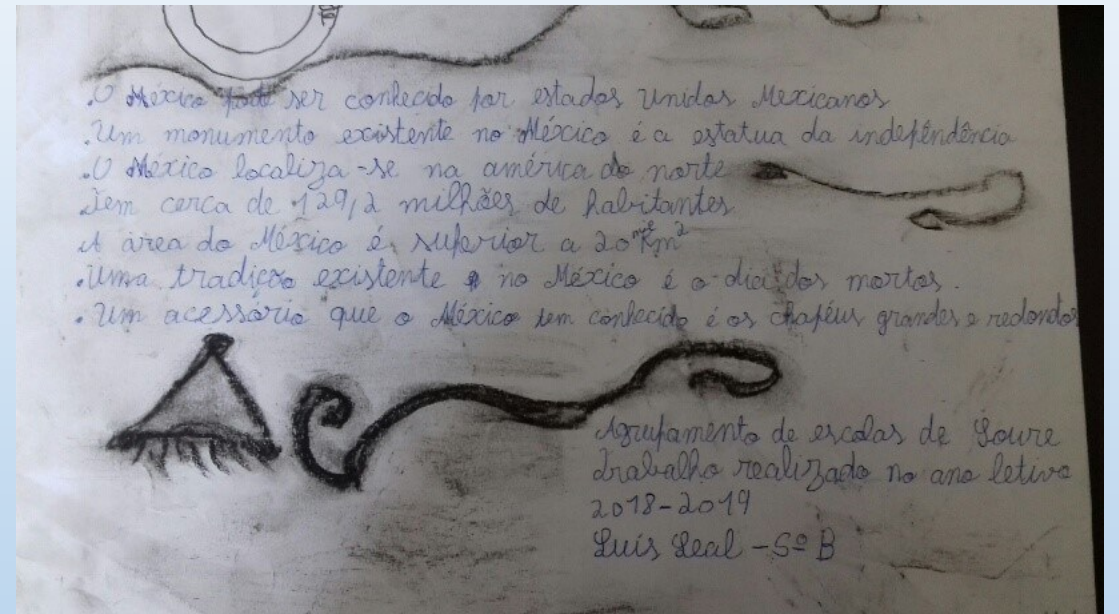 .O México pode ser conhecido por estados Unidos Mexicanos
.Um monumento existente no México é a estatua da indepêndência
.O México localiza-se na américa do norte
.Tem cerca de 129,2 milhões de habitantes
A área do México é superior a 20 mil Km²
.Uma tradição existente no México é o dia dos mortos.
.Um acessório que o México tem conhecido é os chapéus grandes e redondos
Agrupamento de escolas de Soure
Trabalho realizado no ano letivo
2018-2019
Luis Leal - 5º B